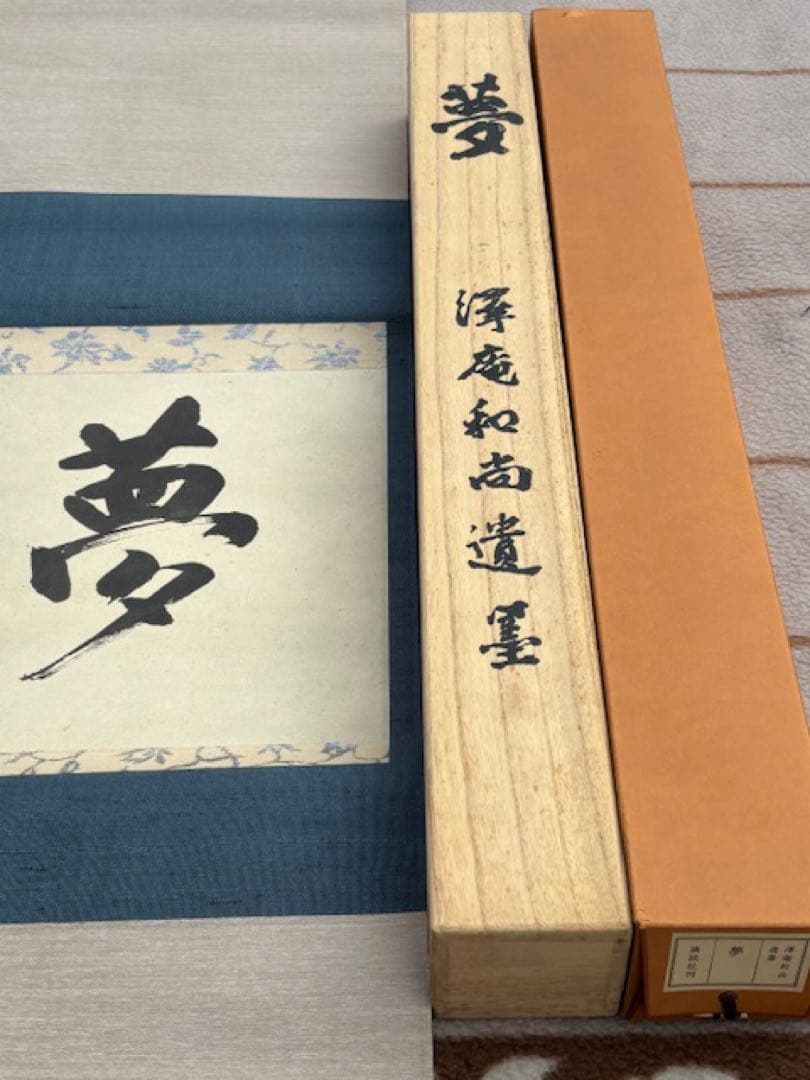 夢
夢
澤庵和尚遺墨
澤庵和尚
遺墨
夢
講談社刊